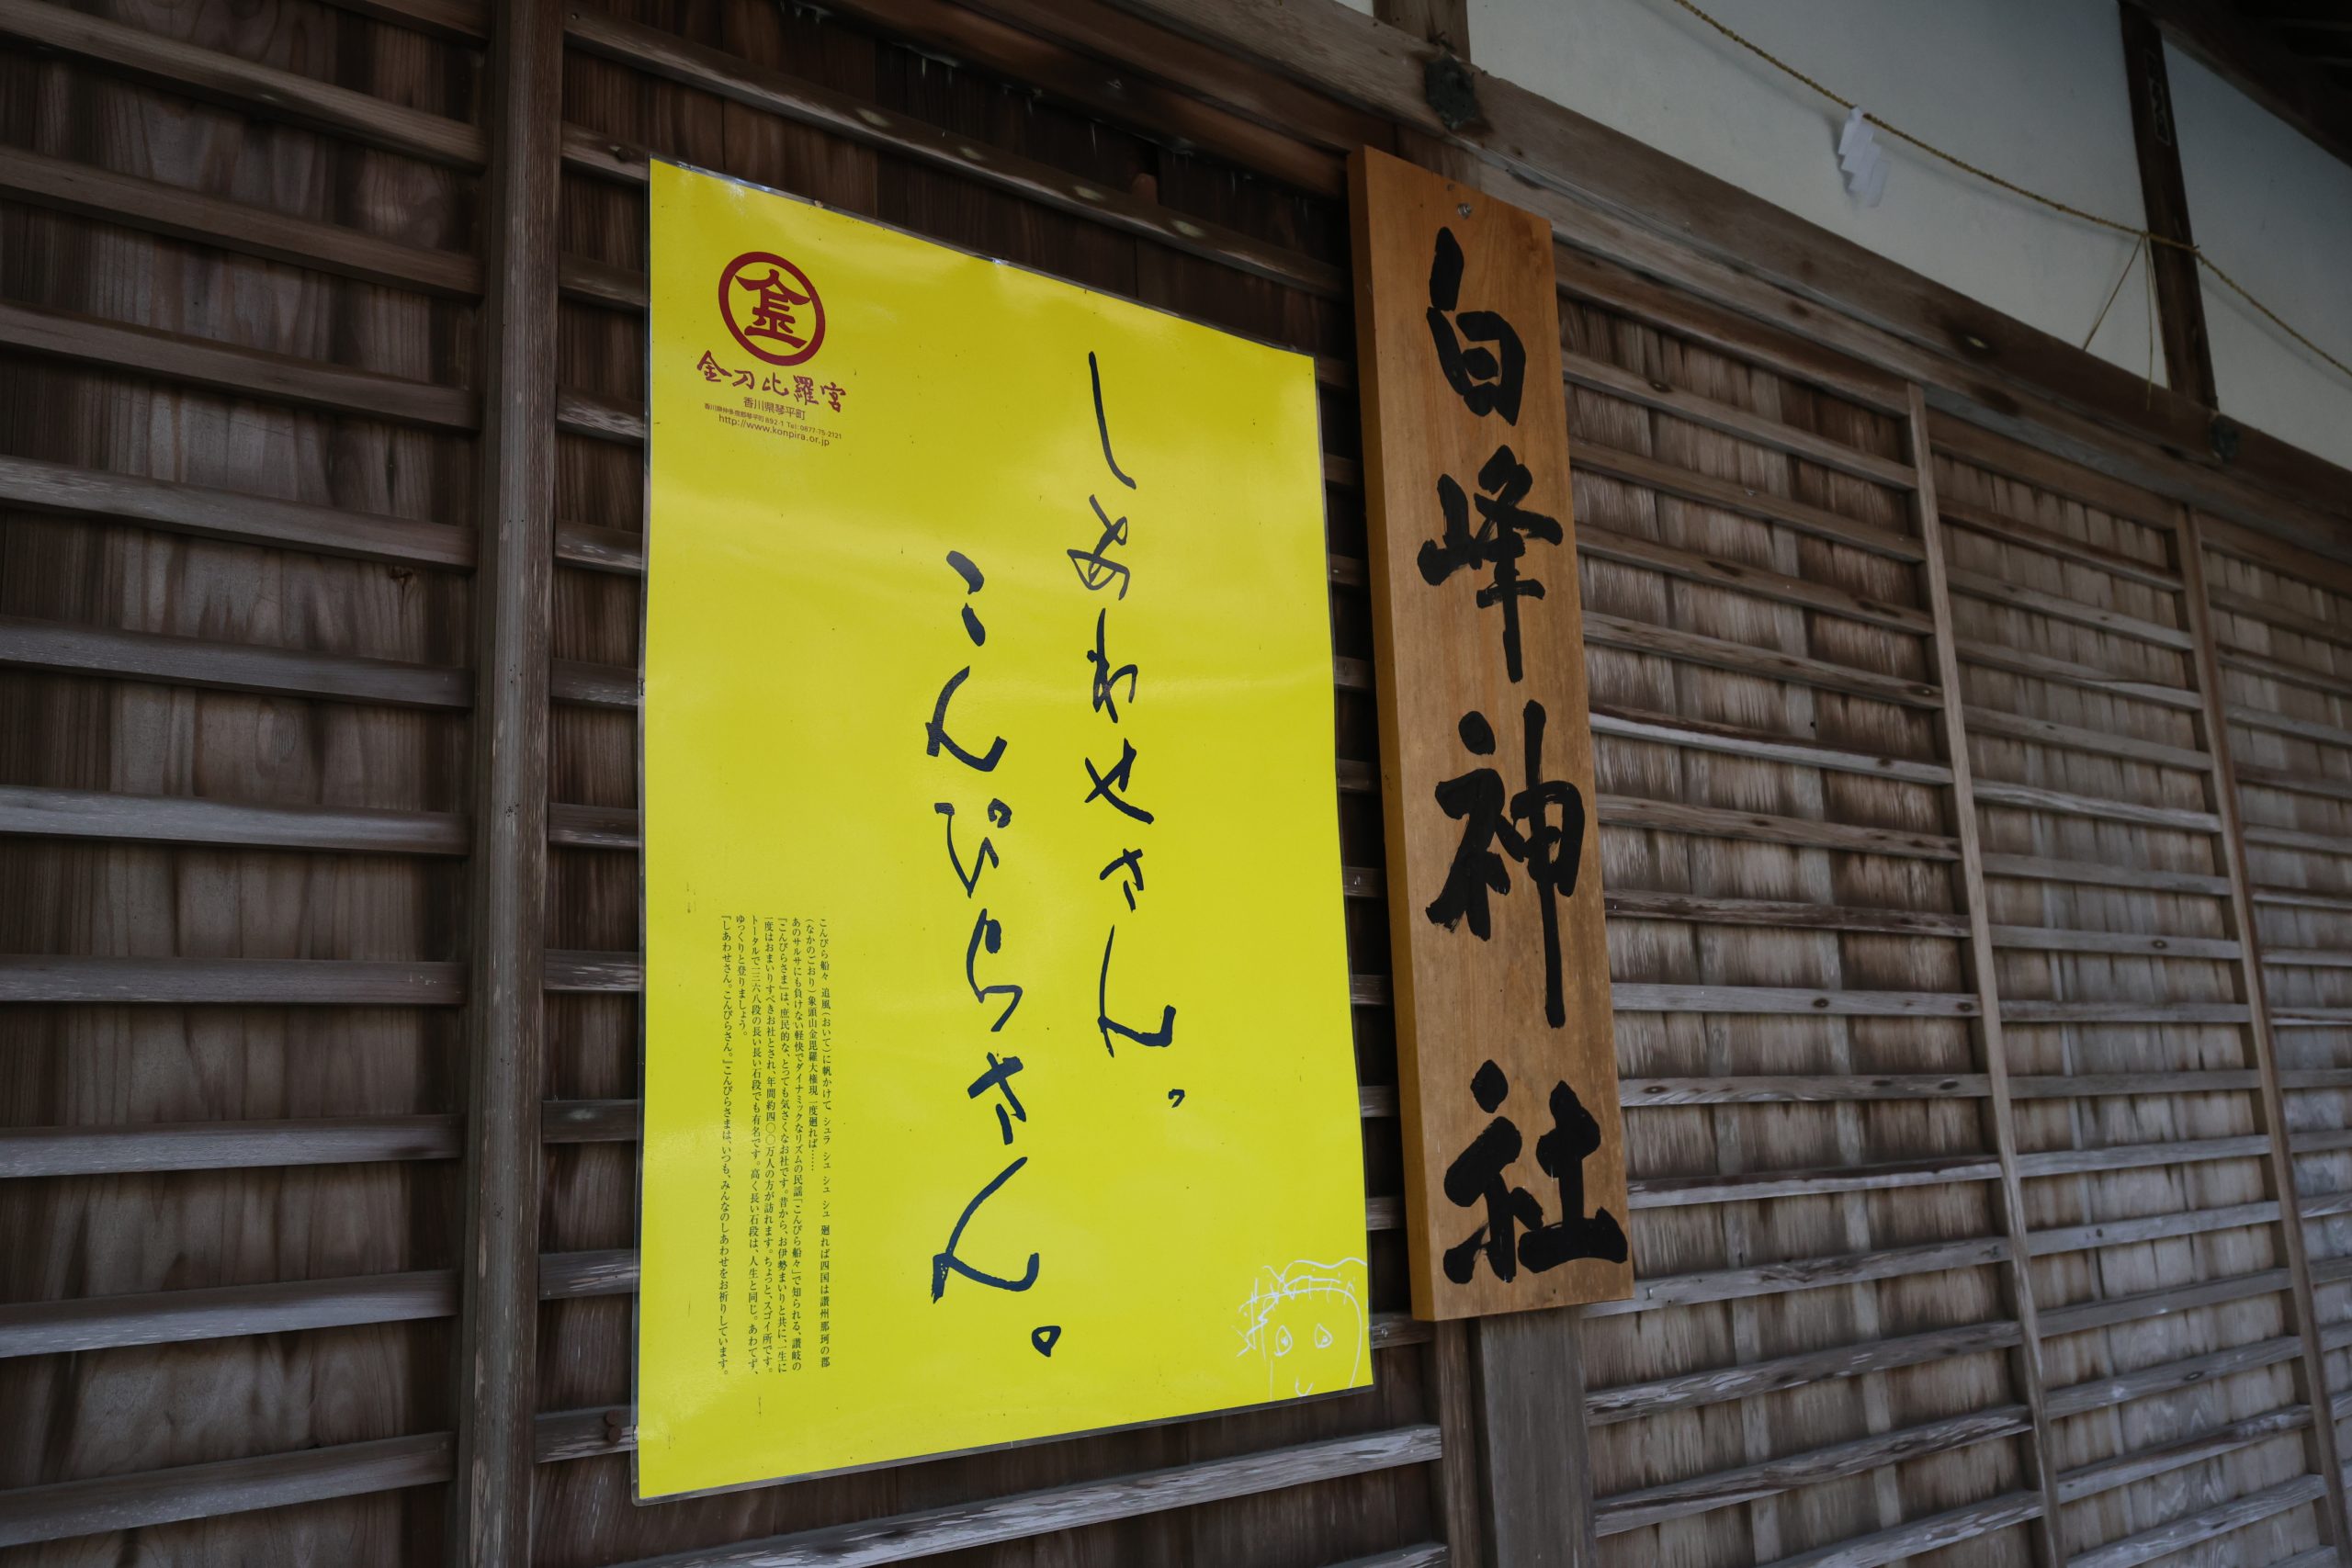 白峰神社
しあわせさん。
こんぴらさん。
金
金刀比羅宮
香川県琴平町
香川県仲多度郡琴平町892-1 Tel: 0877-75-2121
http://www.konpira.or.jp
こんぴら船々 追風(おいて)に帆かけて シュラ シュ シュ シュ 廻れば四国は讃州那珂の郡
(なかのごおり)象頭山金毘羅大権現 一度廻れば……
あのサルサにも負けない軽快でダイナミックなリズムの民謡「こんぴら船々」で知られる、讃岐の
『こんぴらさま』は、庶民的な、とっても気さくなお社です。昔から、お伊勢まいりと共に、一生に
一度はおまいりすべきお社とされ、年間約四〇〇万人の方が訪れます。ちょっと、スゴイ所です。
トータルで一三六八段の長い長い石段でも有名です。高く長い石段は、人生と同じ。あわてず、
ゆっくりと登りましょう。
『しあわせさん。こんぴらさん。』こんぴらさまは、いつも、みんなのしあわせをお祈りしています。